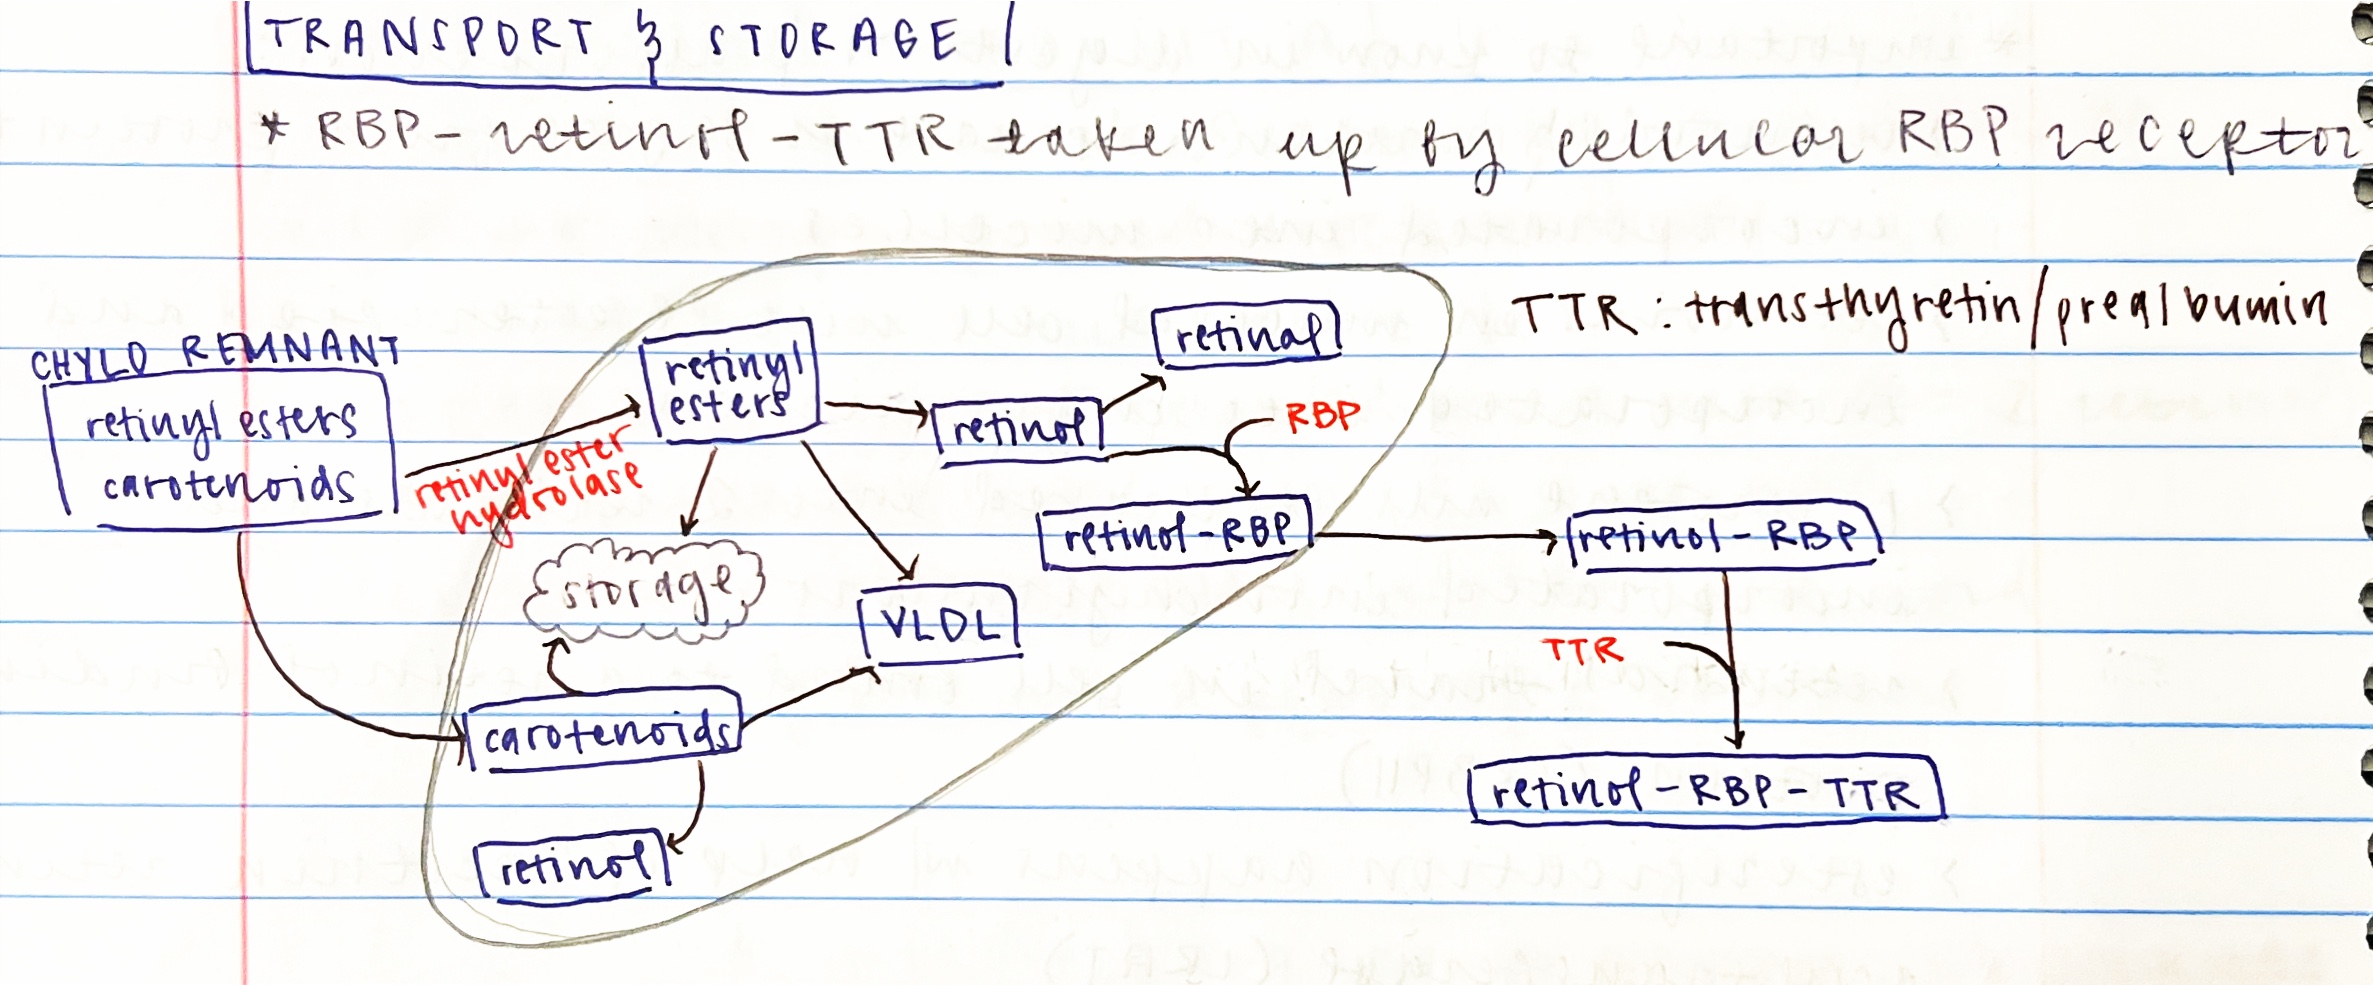 TRANSPORT & STORAGE
* RBP-retinol-TTR taken up by cellular RBP receptor
TTR : transthyretin/prealbumin
CHYLO REMNANT
retinyl esters
carotenoids
retinyl ester
hydrolase
retinyl
esters
retinal
retinol
RBP
retinol-RBP
retinol-RBP
storage
VLDL
TTR
carotenoids
retinol-RBP-TTR
retinol